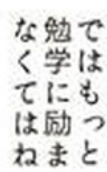 ではもっと
勉学に励ま
なくてはね